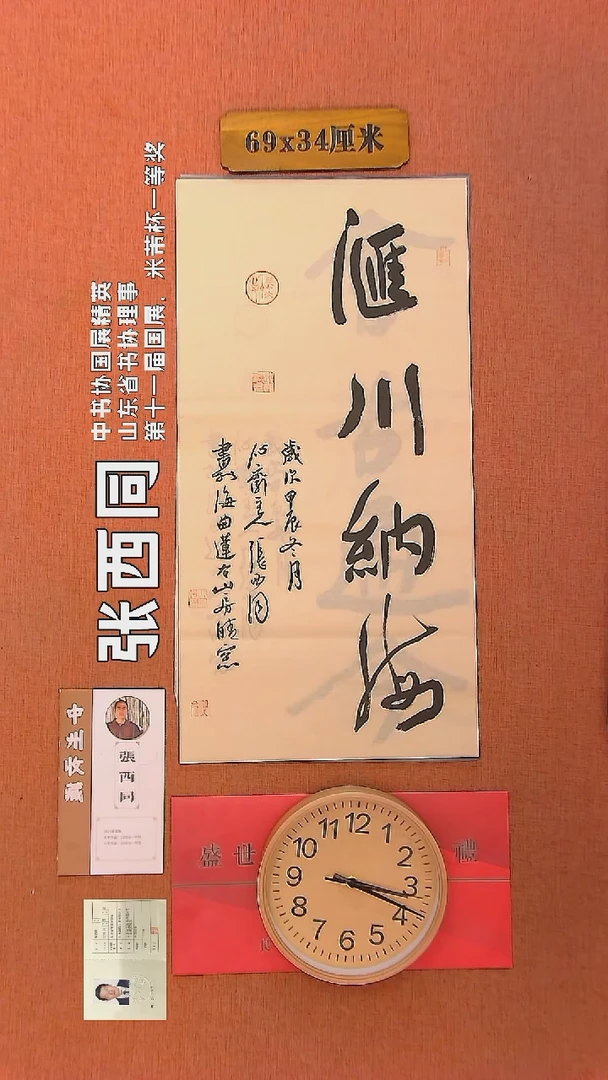 69x34厘米
滙川納海
歲次甲辰冬月
心齋主人張西同
書於海曲蓮台山房晴窓
中书协国展精英
山东省书协理事
第十一届国展、米芾杯一等奖
张西同
張西同
盛世 禮
12
1
2
3
4
5
6
7
8
9
10
11